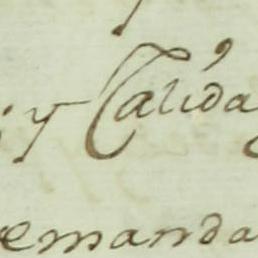 y Calida
emanda